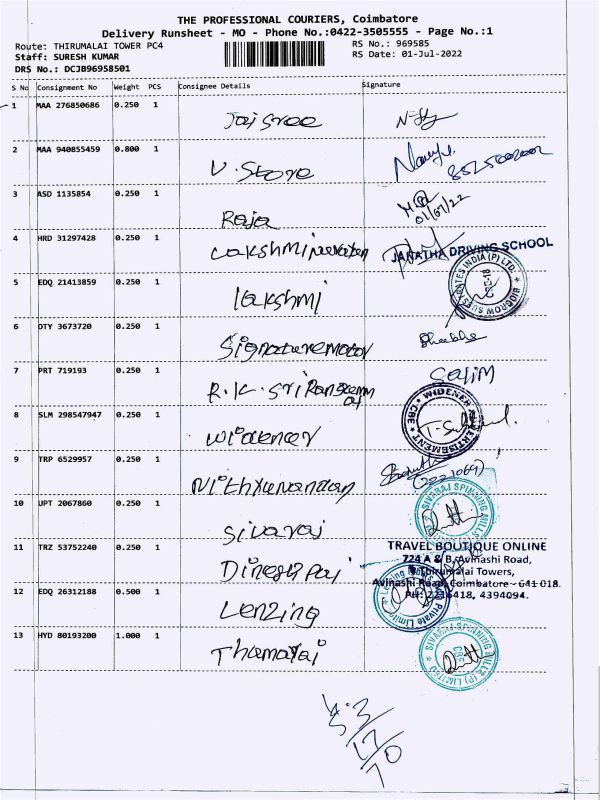 THE PROFESSIONAL COURIERS, Coimbatore
Delivery Runsheet - MO - Phone No.:0422-3505555 - Page No.:1
Route: THIRUMALAI TOWER PC4 RS No.: 969585
Staff: SURESH KUMAR RS Date: 01-Jul-2022
DRS No.: DCJB96958501
S No Consignment No Weight PCS Consignee Details Signature
1 MAA 276850686 0.250 1
Jaisree
2 MAA 940855459 0.800 1
V. Store
3 ASD 1135854 0.250 1
Raja 01/07/22
4 HRD 31297428 0.250 1
JANATHA DRIVING SCHOOL
5 EDQ 21413859 0.250 1
lakshmi
6 OTY 3673720 0.250 1
7 PRT 719193 0.250 1
Salim
R.K.
8 SLM 298547947 0.250 1
WIDENER ADVERTISEMENT * CBE *
Widener
9 TRP 6529957 0.250 1
Nithyanandan
10 UPT 2067860 0.250 1
SIVARAJ SPINNING MILLS
Sivaraj
11 TRZ 53752240 0.250 1
TRAVEL BOUTIQUE ONLINE
724 A & B, Avinashi Road,
Thirumalai Towers,
Avinashi Road, Coimbatore - 641 018.
PH: 2216418, 4394094.
12 EDQ 26312188 0.500 1
Lenzing
Private Limited
13 HYD 80193200 1.000 1
SIVARAJ SPINNING MILLS (P) LIMITED
17
70